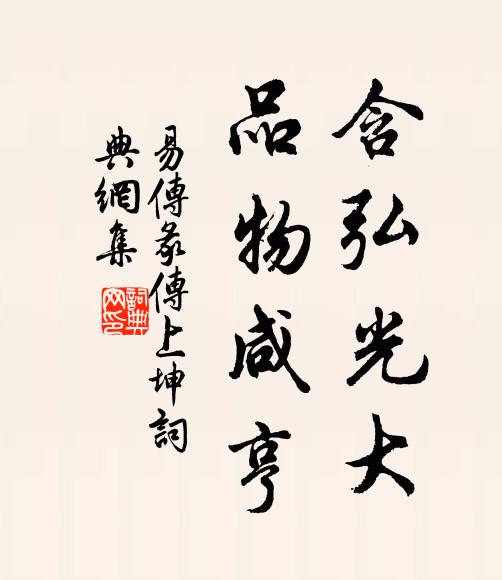 含弘光大
品物咸亨
易傳彖傳上坤詞
典網集
詞典
网印